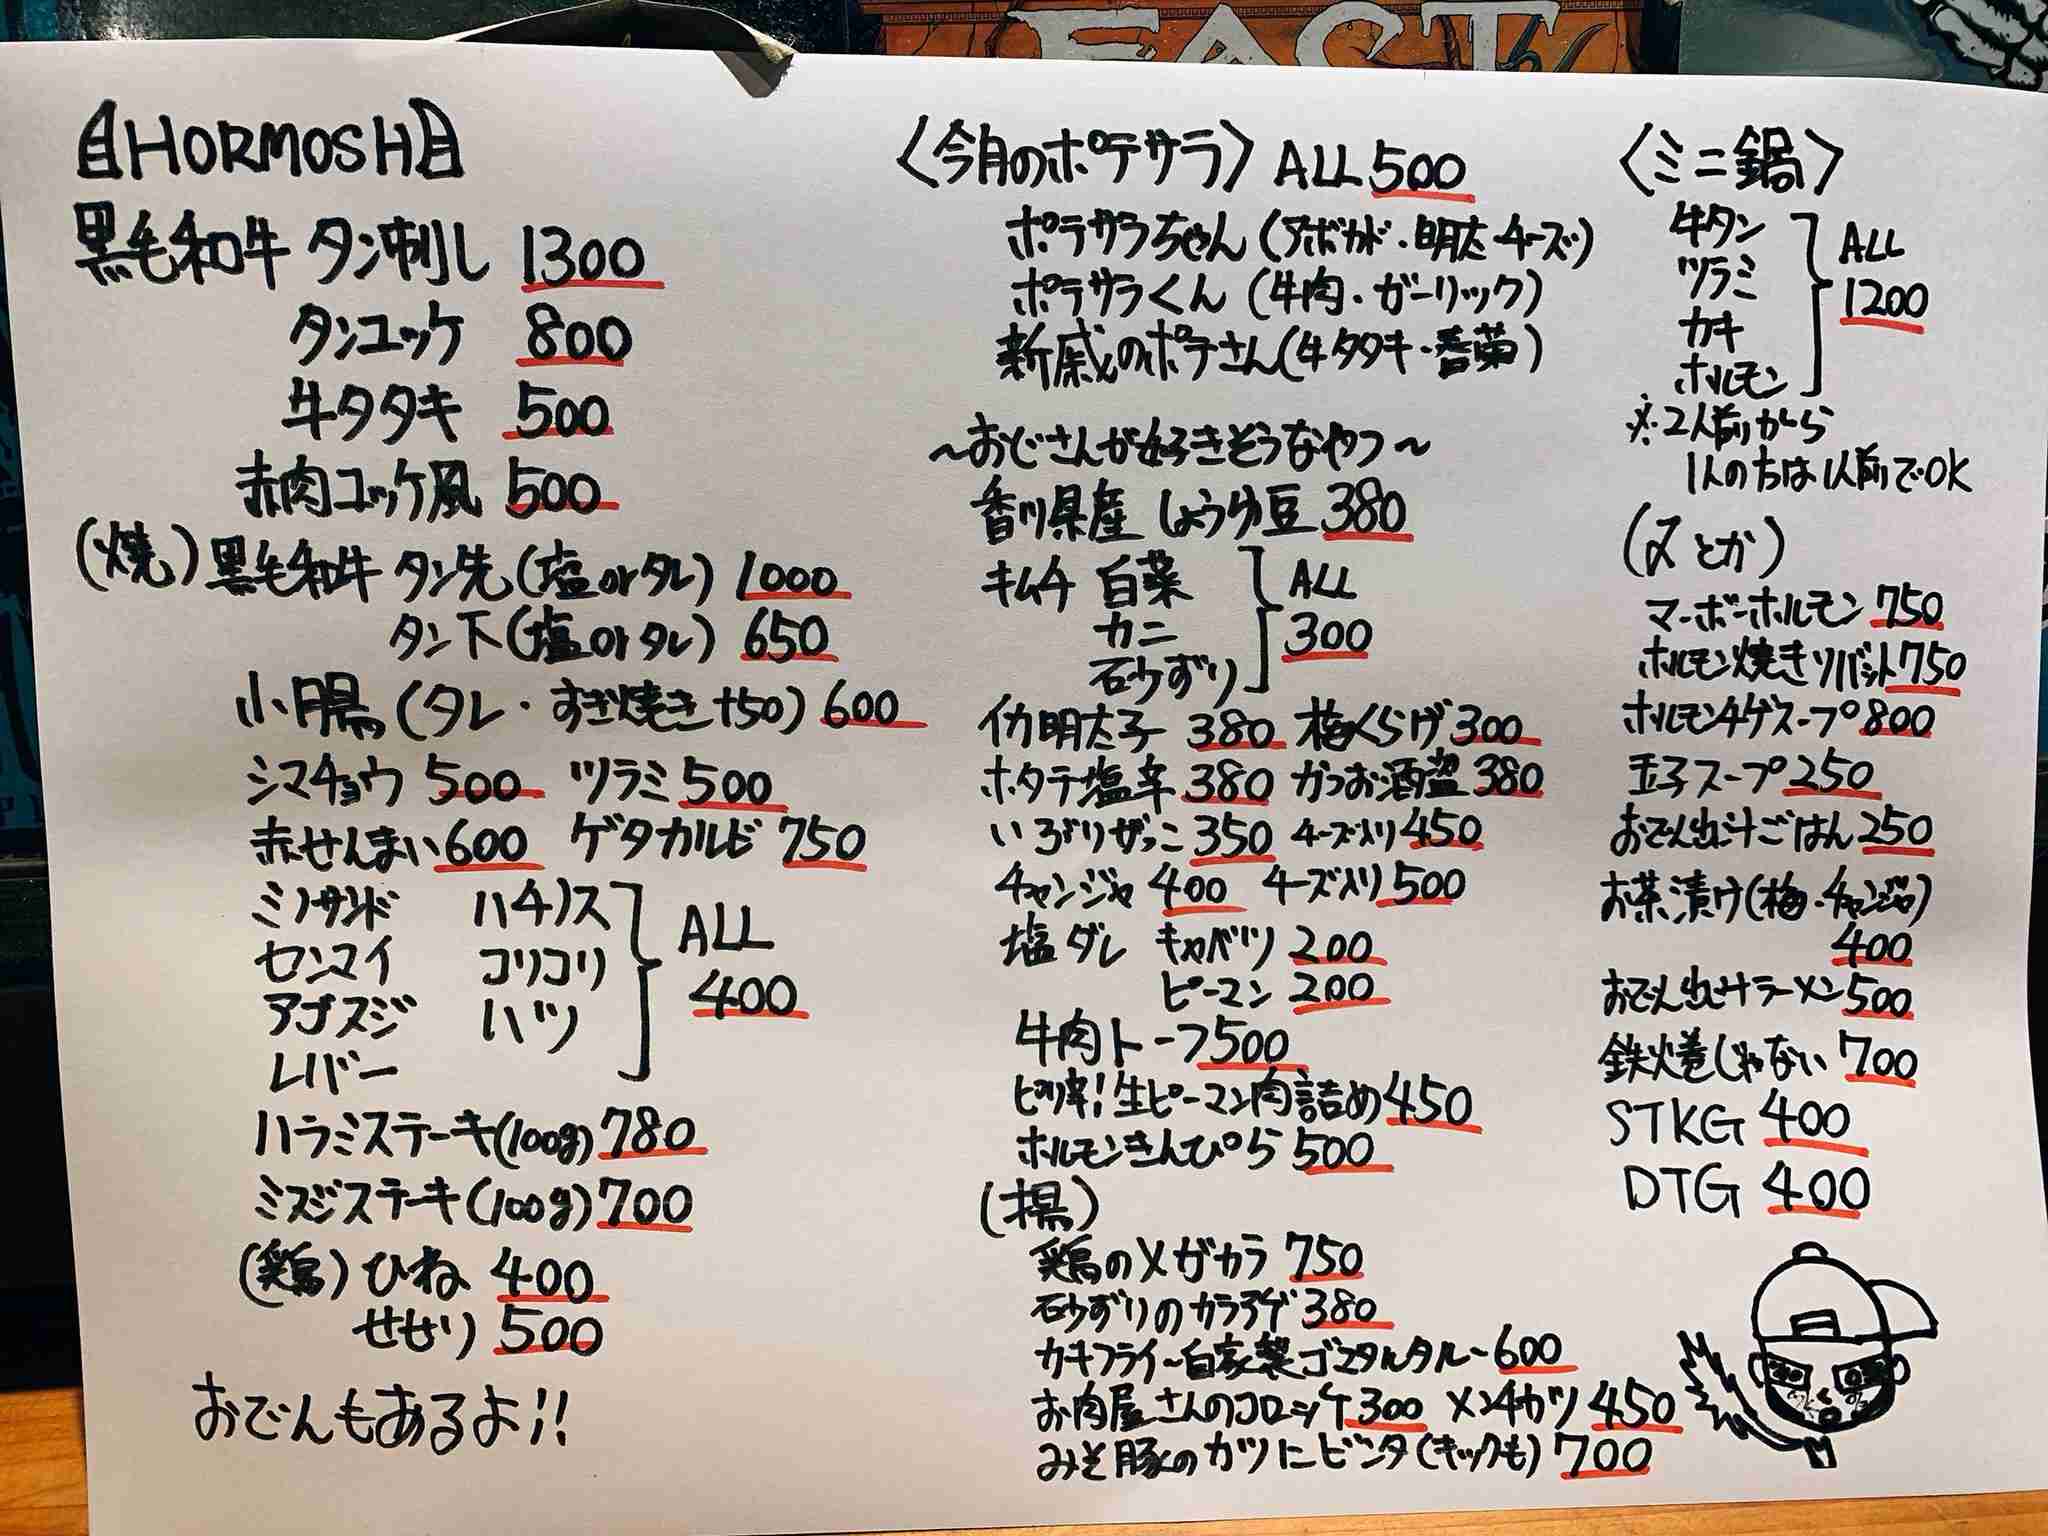 EAST
HORMOSH
黒毛和牛 タン刺し 1300
タンユッケ 800
牛タタキ 500
赤肉ユッケ風 500
(焼) 黒毛和牛 タン先(塩orタレ) 1000
タン下(塩orタレ) 650
小腸(タレ・すき焼き+50) 600
シマチョウ 500 ツラミ 500
赤せんまい 600 ゲタカルビ 750
ミノサンド ハチノス
センマイ コリコリ
アゴスジ ハツ
レバー
ALL
400
ハラミステーキ(100g) 780
ミスジステーキ(100g) 700
(鶏) ひね 400
せせり 500
おでんもあるよ!!
〈今月のポテサラ〉 ALL 500
ポテサラちゃん(アボカド・明太・チーズ)
ポテサラくん(牛肉・ガーリック)
新感のポテさん(牛タタキ・春菊)
~おじさんが好きそうなやつ~
香川県産 しょうゆ豆 380
キムチ 白菜
カニ
砂ずり
ALL
300
イカ明太子 380 梅くらげ 300
ホタテ塩辛 380 かつお酒盗 380
いぶりザっこ 350 チーズ入り 450
チャンジャ 400 チーズ入り 500
塩ダレ キャベツ 200
ピーマン 200
牛肉トーフ 500
ピリ辛!生ピーマン肉詰め 450
ホルモンきんぴら 500
(揚)
鶏のメガカラ 750
砂ずりのカラアゲ 380
カキフライ~自家製ゴマタルタル~ 600
お肉屋さんのコロッケ 300 メンチカツ 450
みそ豚のカツにビンタ(キックも) 700
〈ミニ鍋〉
牛タン
ツラミ
カキ
ホルモン
ALL
1200
※2人前から
1人の方は1人前でOK
(〆とか)
マーボーホルモン 750
ホルモン焼きリバット 750
ホルモンチゲスープ 800
玉子スープ 250
おでん出汁ごはん 250
お茶漬け(梅・チャンジャ)
400
おでん出汁ラーメン 500
鉄火巻じゃない 700
STKG 400
DTG 400